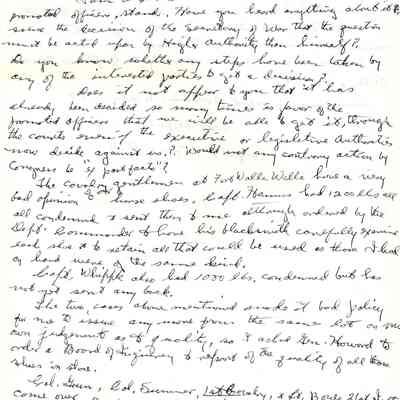 promoted officers, stand. Have you heard anything about it &
since the decision of the Secretary of War that the question
must be acted upon by Higher Authority than himself?
Do you know whether any steps have been taken by
any of the interested parties to get a decision?
Does it not appear to you that it has
already been decided so many times in favor of the
promoted officers that we will be able to get it, through
the courts even if the executive or legislative Authorities
now decide against us.? Would not any contrary action by
Congress be "ex post facto"?
The cavalry gentlemen at Fort Walla Walla have a very
bad opinion of my horse shoes. Capt. had 1200 lbs all
all condemned & sent them to me although ordered by the
Dept. Commander to have his blacksmith carefully examine
each shoe & to retain all that could be used as those I had
on hand were of the same kind.
Capt. Whipple also had 1030 lbs. condemned but has
not yet sent any back.
The two cases above mentioned made it bad policy
for me to issue any more from the same lot on my
own judgement as to quality, so I asked Gen. Howard to
order a Board of Inquiry to report of the quality of all
shoes in store.
Col. Col. Sumner, & Lt. 21st
come over